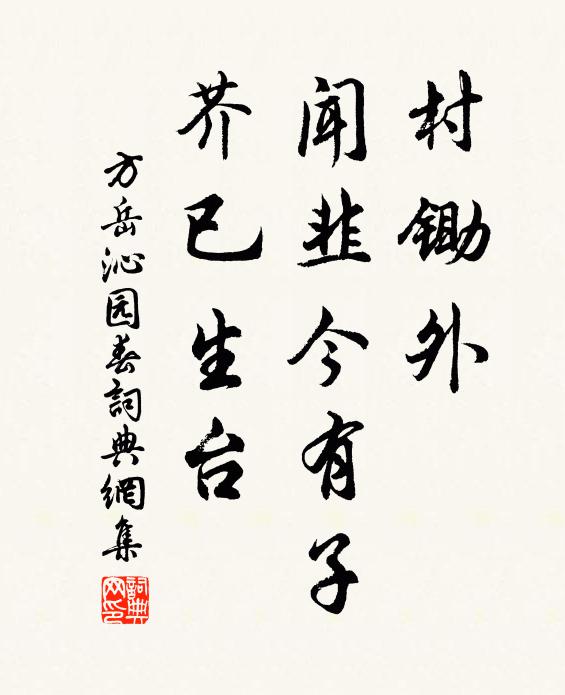 村锄外
闻韭今有子
芥已生台
方岳沁园春詞典網集
詞典网印